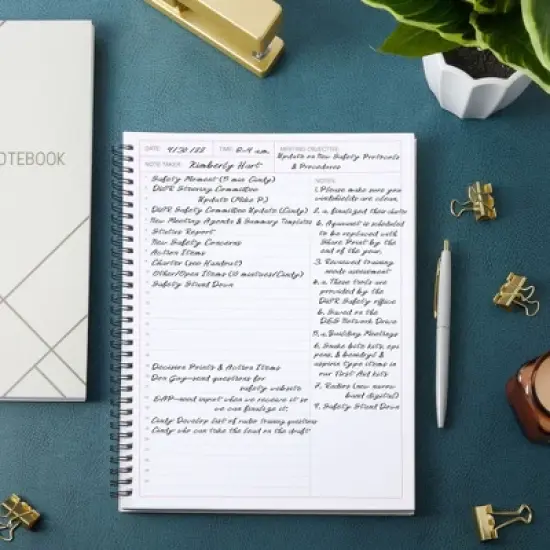 NOTEBOOK
DATE: 4/30/22 TIME: 8-9 a.m. MEETING OBJECTIVE:
Update on New Safety Protocols
& Procedures
NOTE TAKER: Kimberly Hart
Safety Moment (5 min Cindy)
DRPR Steering Committee
Update (Mike P.)
DRPR Safety Committee Update (Cindy)
New Meeting Agenda & Summary Templates
Status Report
New Safety Concerns
Action Items
Charter (see Handout)
Other/Open Items (10 minutes/Cindy)
Safety Stand Down
Decision Points & Action Items
Don Guy-need questions for
safety website
EAP-need input when we receive it so
we can finalize it.
Cindy Develop list of radio training questions
Cindy who can take the lead on the draft
NOTES:
1. Please make sure your
windshields are clean.
2. a. finalized their charter
b. Aquanet is scheduled
to be replaced with
Share Point by the
end of the year.
3. Reviewed training
needs assessment
4. a. These tools are
provided by the
DRPR Safety office
b. Saved on the
Network Drive
5. a. Building Meetings
6. Snake bite kits, epi
pens, & benadryl &
aspirin type items in
our First Aid kits
7. Radios (new narrow
band digital)
9. Safety Stand Down